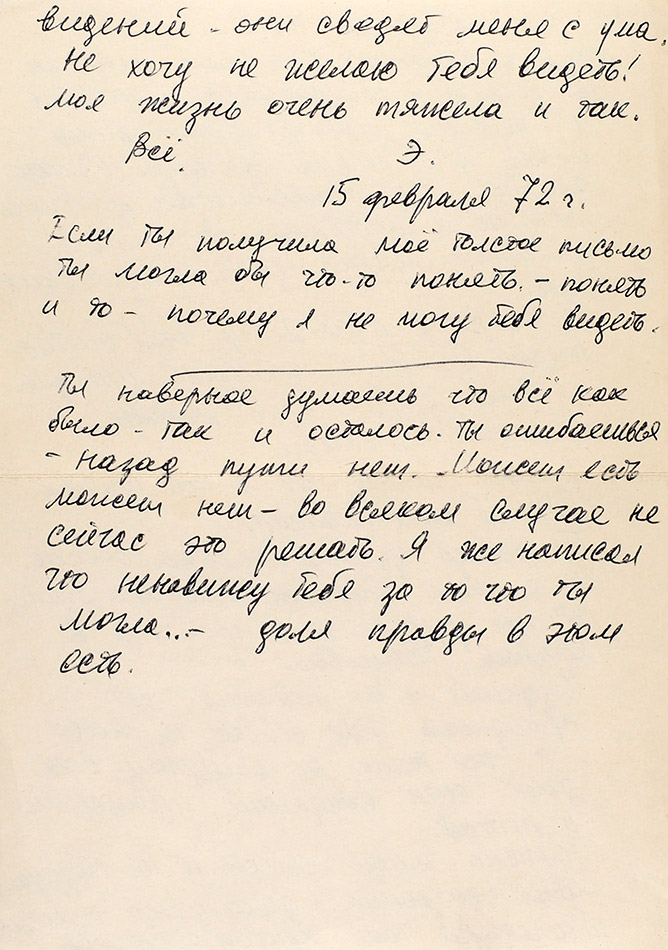 видений - они сводят меня с ума.
Не хочу не желаю тебя видеть!
моя жизнь очень тяжела и так.
Всё. Э.
15 февраля 72 г.
Если ты получила моё толстое письмо
ты могла бы что-то понять. - понять
и то - почему я не могу тебя видеть.
Ты наверное думаешь что всё как
было - так и осталось. Ты ошибаешься
- назад пути нет. Может есть
может нет - во всяком случае не
сейчас это решать. Я же написал
что ненавижу тебя за то что ты
могла...- доля правды в этом
есть.